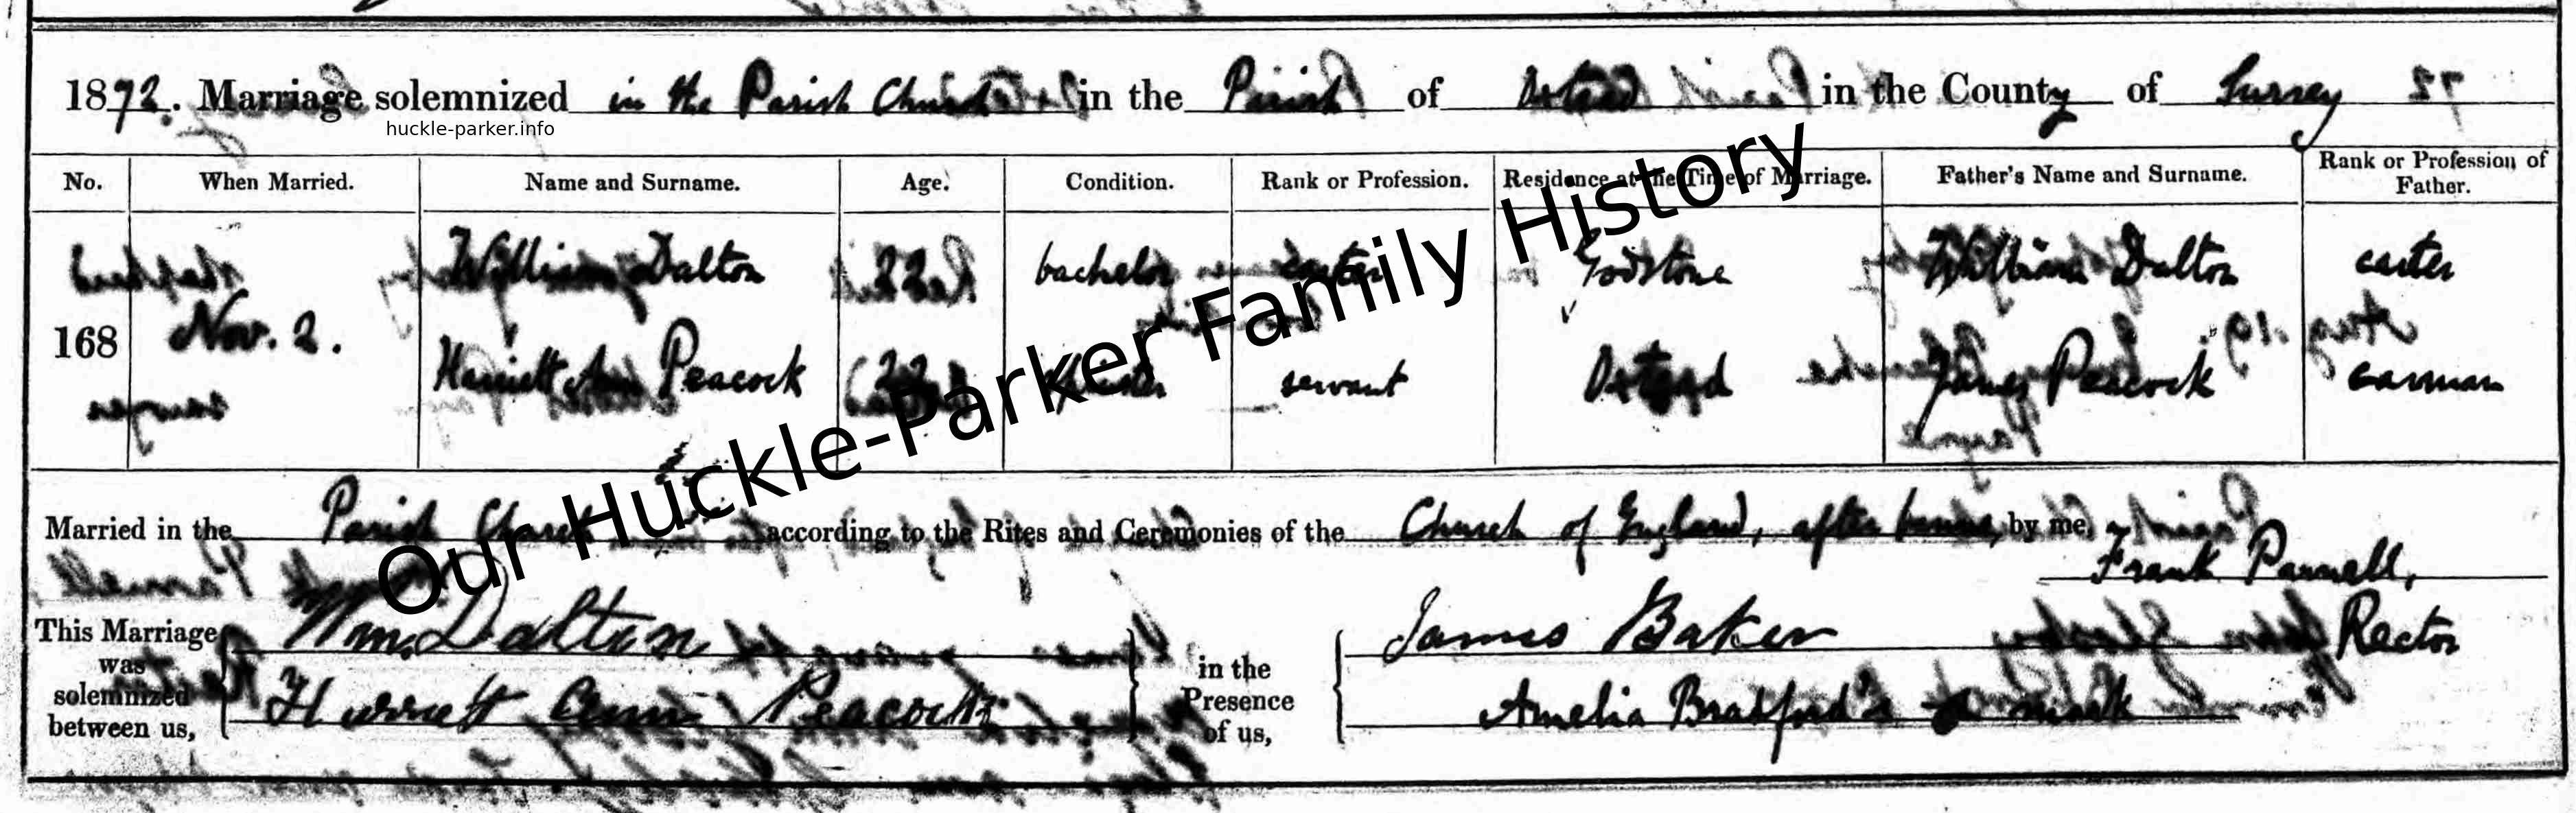 1872. Marriage solemnized in the Parish Church in the Parish of Oxted in the County of Surrey
huckle-parker.info
No. When Married. Name and Surname. Age. Condition. Rank or Profession. Residence at the Time of Marriage. Father's Name and Surname. Rank or Profession of Father.
William Dalton 22 bachelor carter Godstone William Dalton carter
168 Nov. 2.
Harriett Ann Peacock 22 spinster servant Oxted James Peacock carman
Our Huckle-Parker Family History
Married in the Parish Church according to the Rites and Ceremonies of the Church of England, after banns, by me,
Frank Parnell,
Rector
This Marriage was solemnized between us,
Wm. Dalton
Harriett Ann Peacock
in the Presence of us,
James Baker
Amelia Bradford's mark